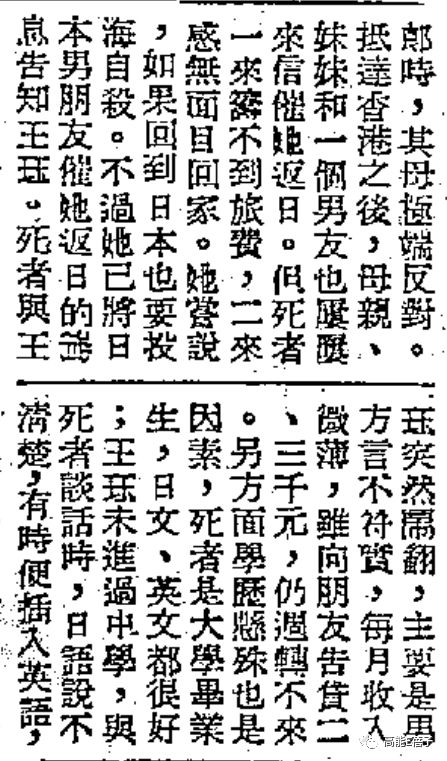 郎時，其母極端反對。
抵達香港之後，母親、
妹妹和一個男友也屢屢
來信催她返日。但死者
一來籌不到旅費，二來
感無面目回家。她嘗說
，如果回到日本也要投
海自殺。不過她已將日
本男朋友催她返日的消
息告知王珏。死者與王
珏突然鬧翻，主要是男
方言不符實，每月收入
微薄，雖向朋友告貸二
、三千元，仍週轉不來
。另方面學歷懸殊也是
因素，死者是大學畢業
生，日文、英文都很好
；王珏未進過中學，與
死者談話時，日語說不
清楚，有時便插入英語，
高能E